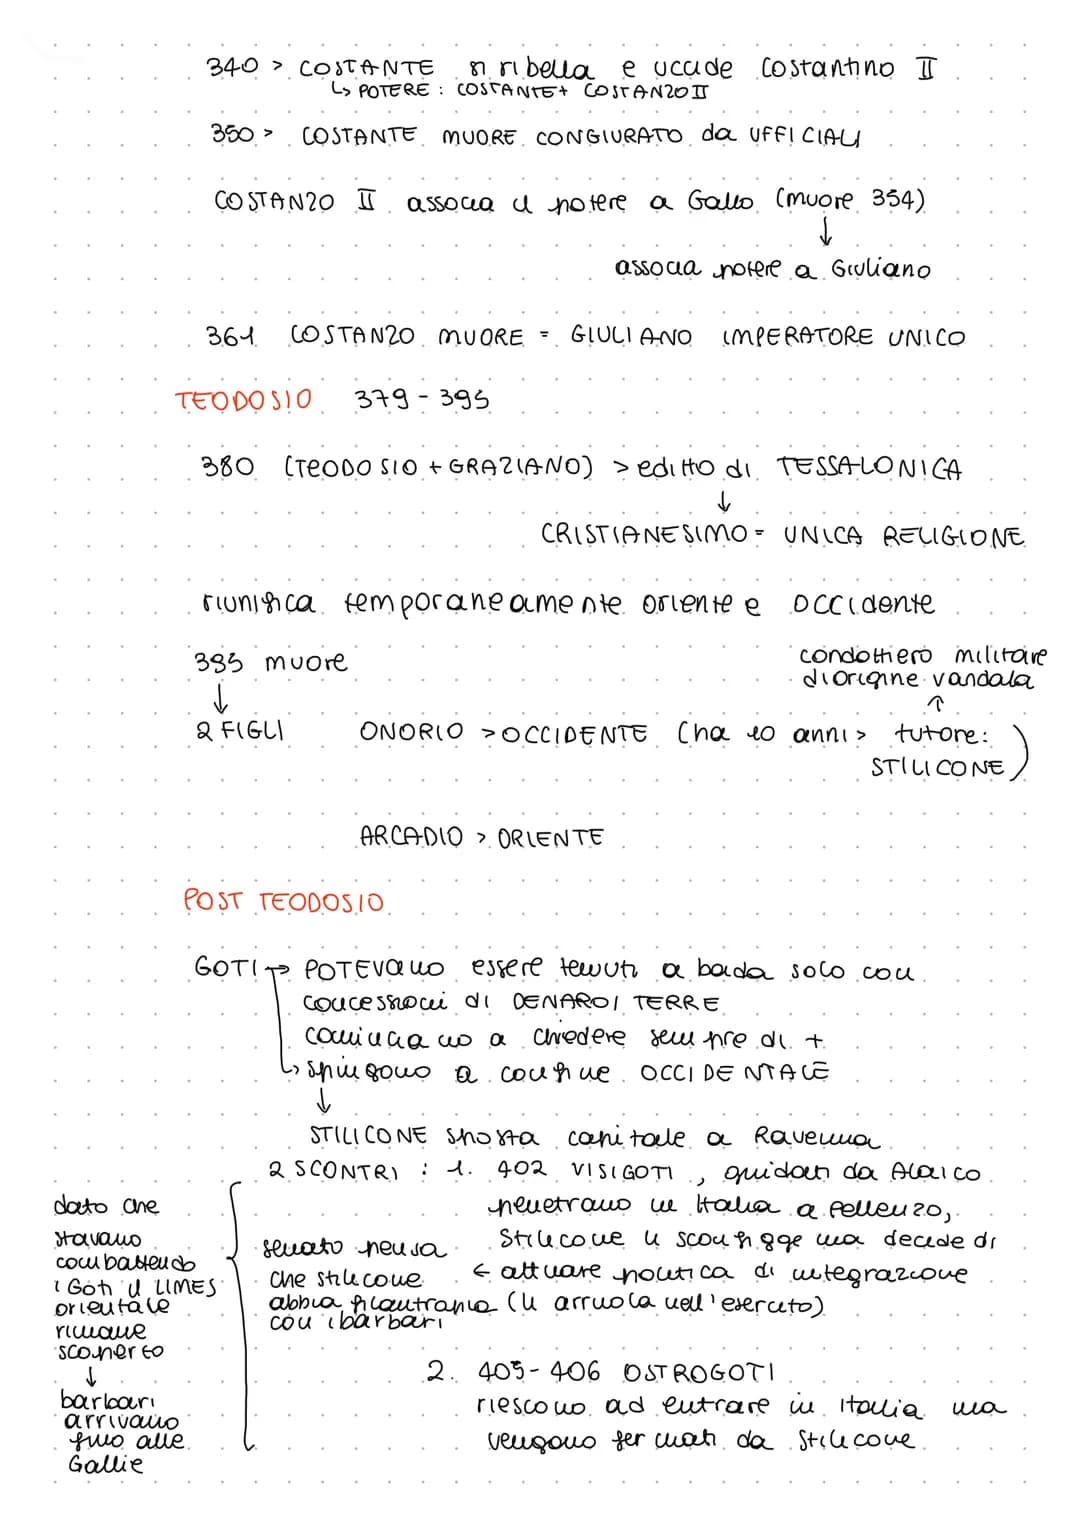 340 > COSTANTE si ribella e uccide Costantino II
↳ POTERE : COSTANTE + COSTANZO II
350 > COSTANTE MUORE CONGIURATO da UFFICIALI
COSTANZO II associa il potere a Gallo (muore 354)
↓
associa potere a Giuliano
361 COSTANZO MUORE = GIULIANO IMPERATORE UNICO
TEODOSIO 379 - 395
380 (TEODOSIO + GRAZIANO) > editto di TESSALONICA
↓
CRISTIANESIMO = UNICA RELIGIONE
riunifica temporaneamente oriente e occidente
395 muore
↓
2 FIGLI
condottiero militare
di origine vandala
↑
ONORIO > OCCIDENTE (ha 10 anni > tutore:
STILICONE)
ARCADIO > ORIENTE
POST TEODOSIO
GOTI → POTEVANO essere tenuti a bada solo con
concessioni di DENARO/ TERRE
cominciano a chiedere sempre di +
↳ spingono a confine OCCIDENTALE
↓
STILICONE sposta capitale a Ravenna
2 SCONTRI : 1. 402 VISIGOTI, guidati da Alarico
penetrano in Italia a Pollenzo,
Stilicone li sconfigge ma decide di
← attuare politica di integrazione
(li arruola nell'esercito)
senato pensa
che stilicone
abbia filantrania
con i barbari
2. 405 - 406 OSTROGOTI
riescono ad entrare in Italia ma
vengono fermati da Stilicone
dato che
stavano
combattendo
i Goti il LIMES
orientale
rimane
scoperto
↓
barbari
arrivano
fino alle
Gallie